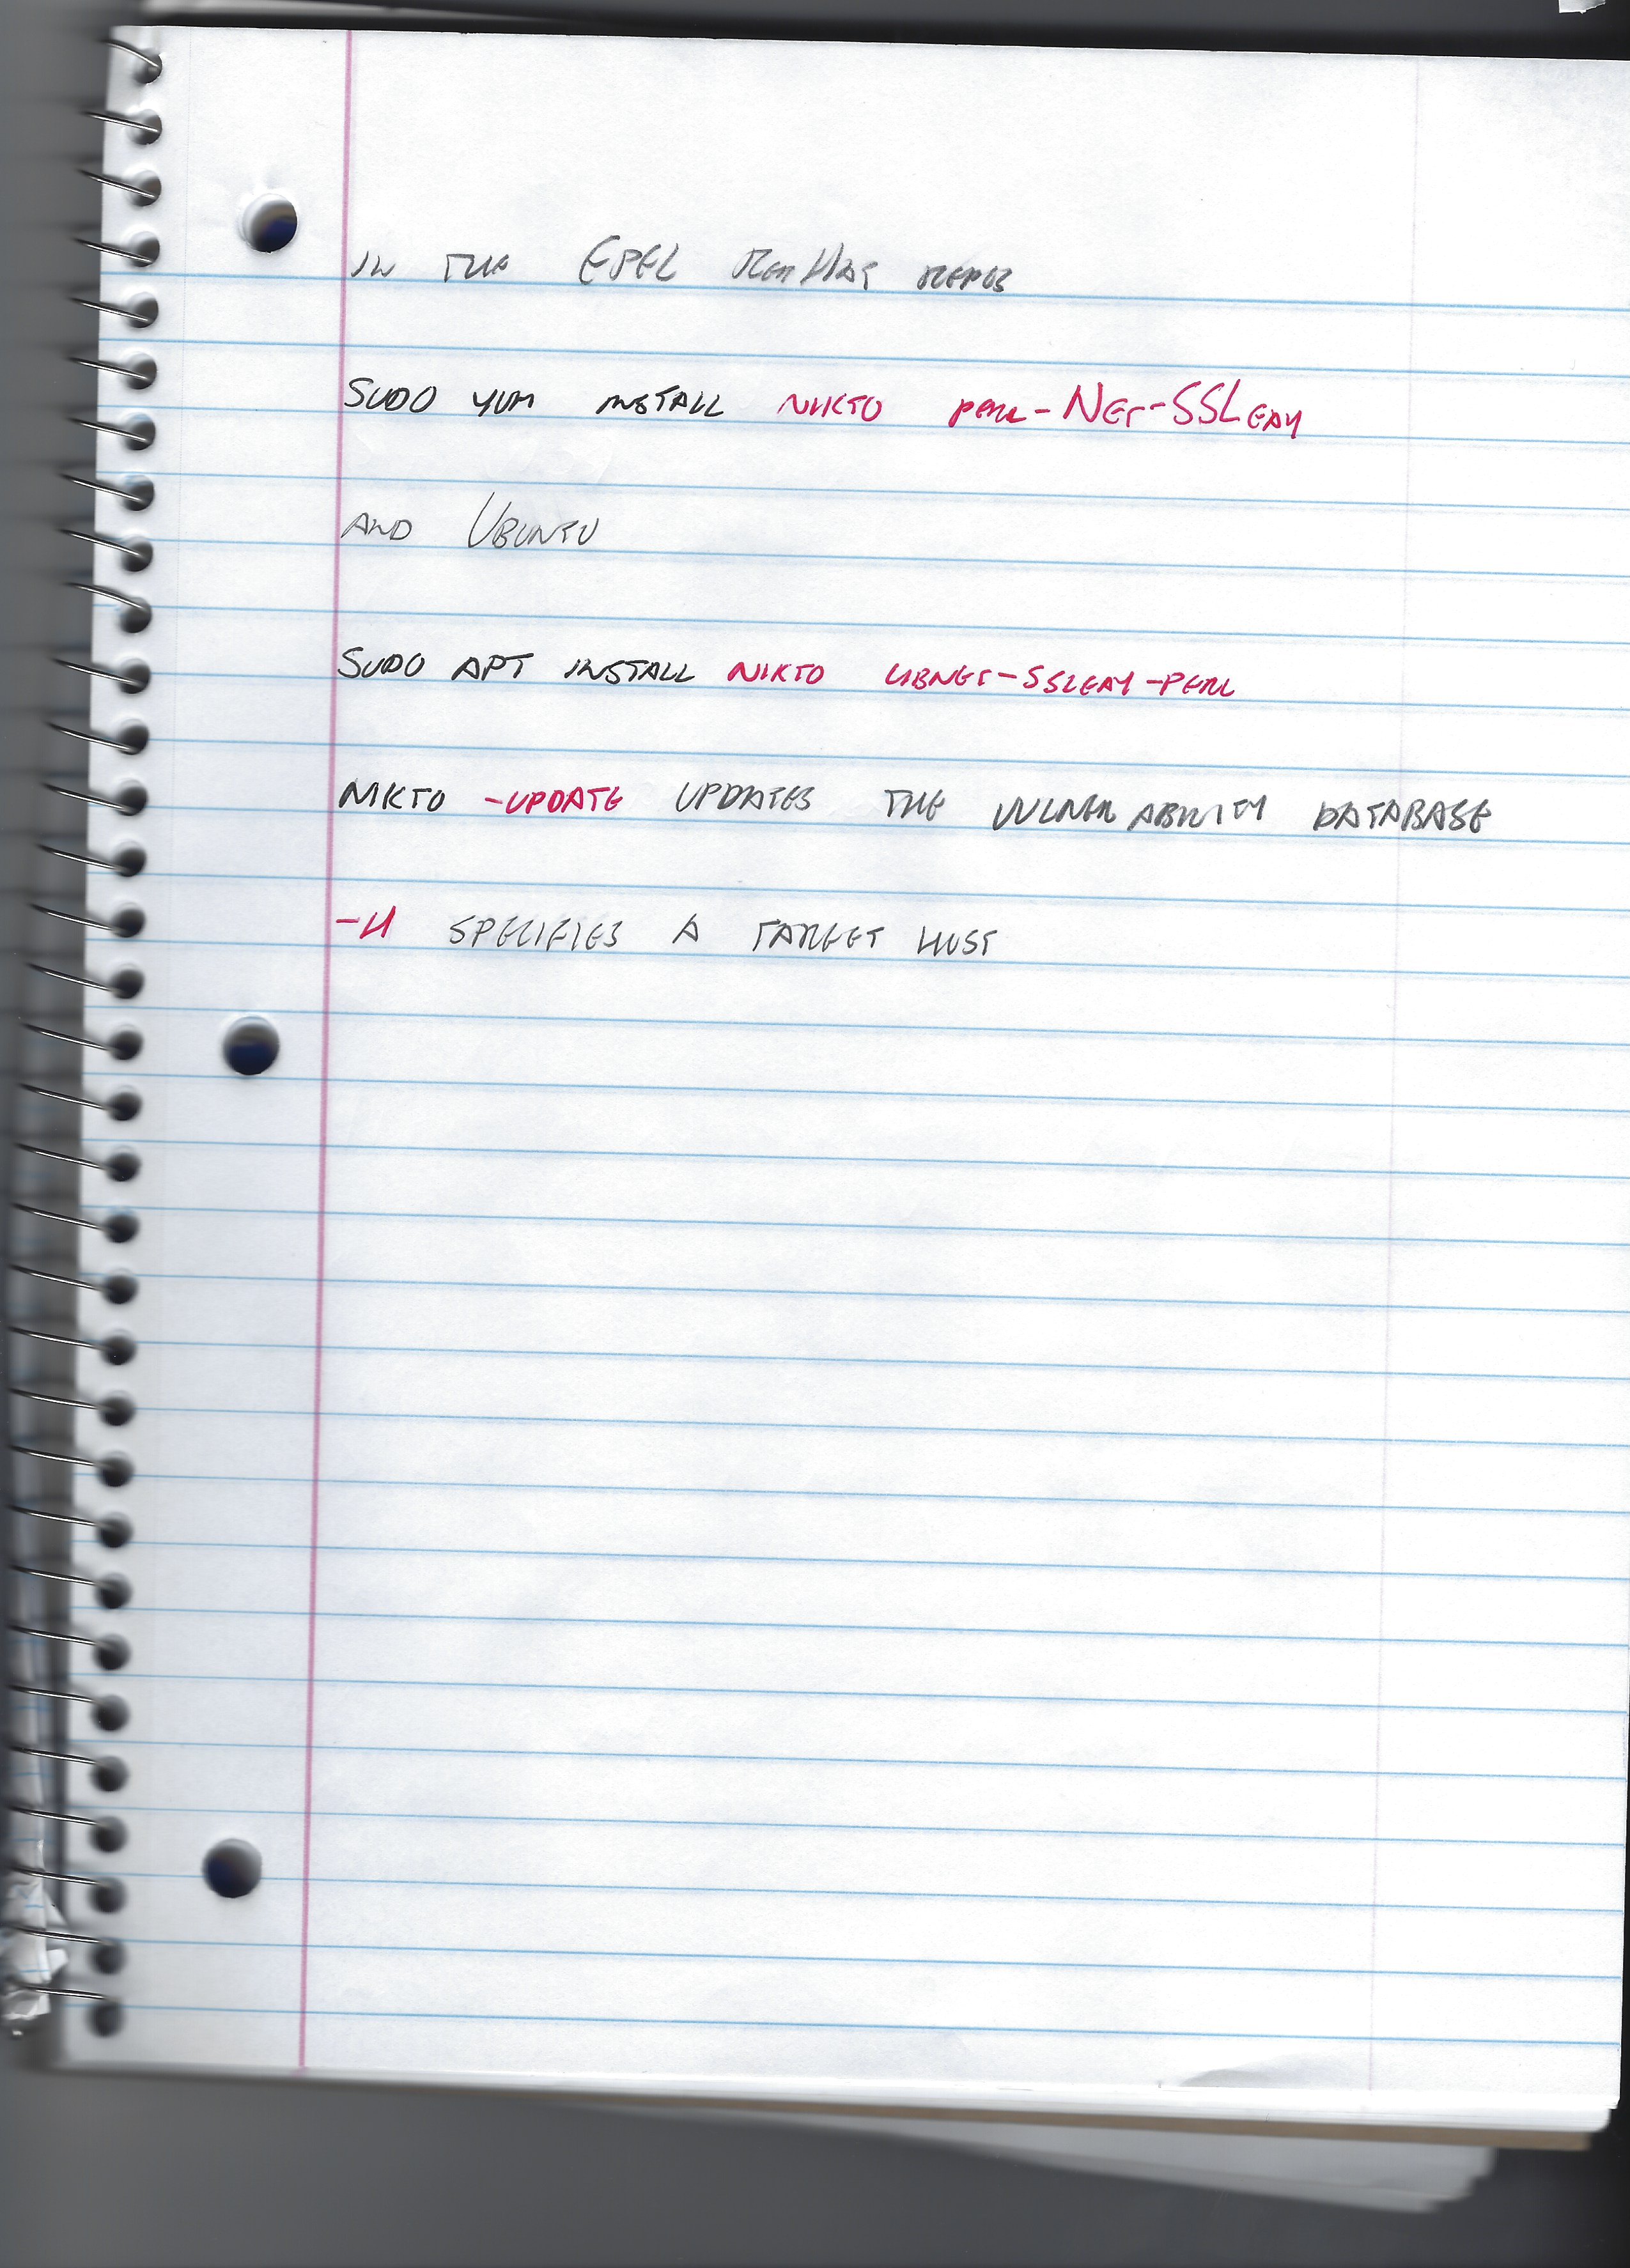 IN THE EPEL REDHAT REPOS
SUDO YUM INSTALL NIKTO PERL-NET-SSLEAY
AND UBUNTU
SUDO APT INSTALL NIKTO LIBNET-SSLEAY-PERL
NIKTO -UPDATE UPDATES THE VULNERABILITY DATABASE
-H SPECIFIES A TARGET HOST